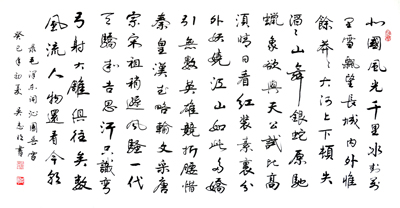 北國風光千里冰封萬
里雪飄望長城內外惟
餘莽莽大河上下頓失
滔滔山舞銀蛇原馳
蠟象欲與天公試比高
須晴日看紅裝素裹分
外妖嬈江山如此多嬌
引無數英雄競折腰惜
秦皇漢武略輸文采唐
宗宋祖稍遜風騷一代
天驕成吉思汗只識彎
弓射大雕俱往矣數
風流人物還看今朝
录毛泽东词沁園春雪
癸巳年初夏 吴志書